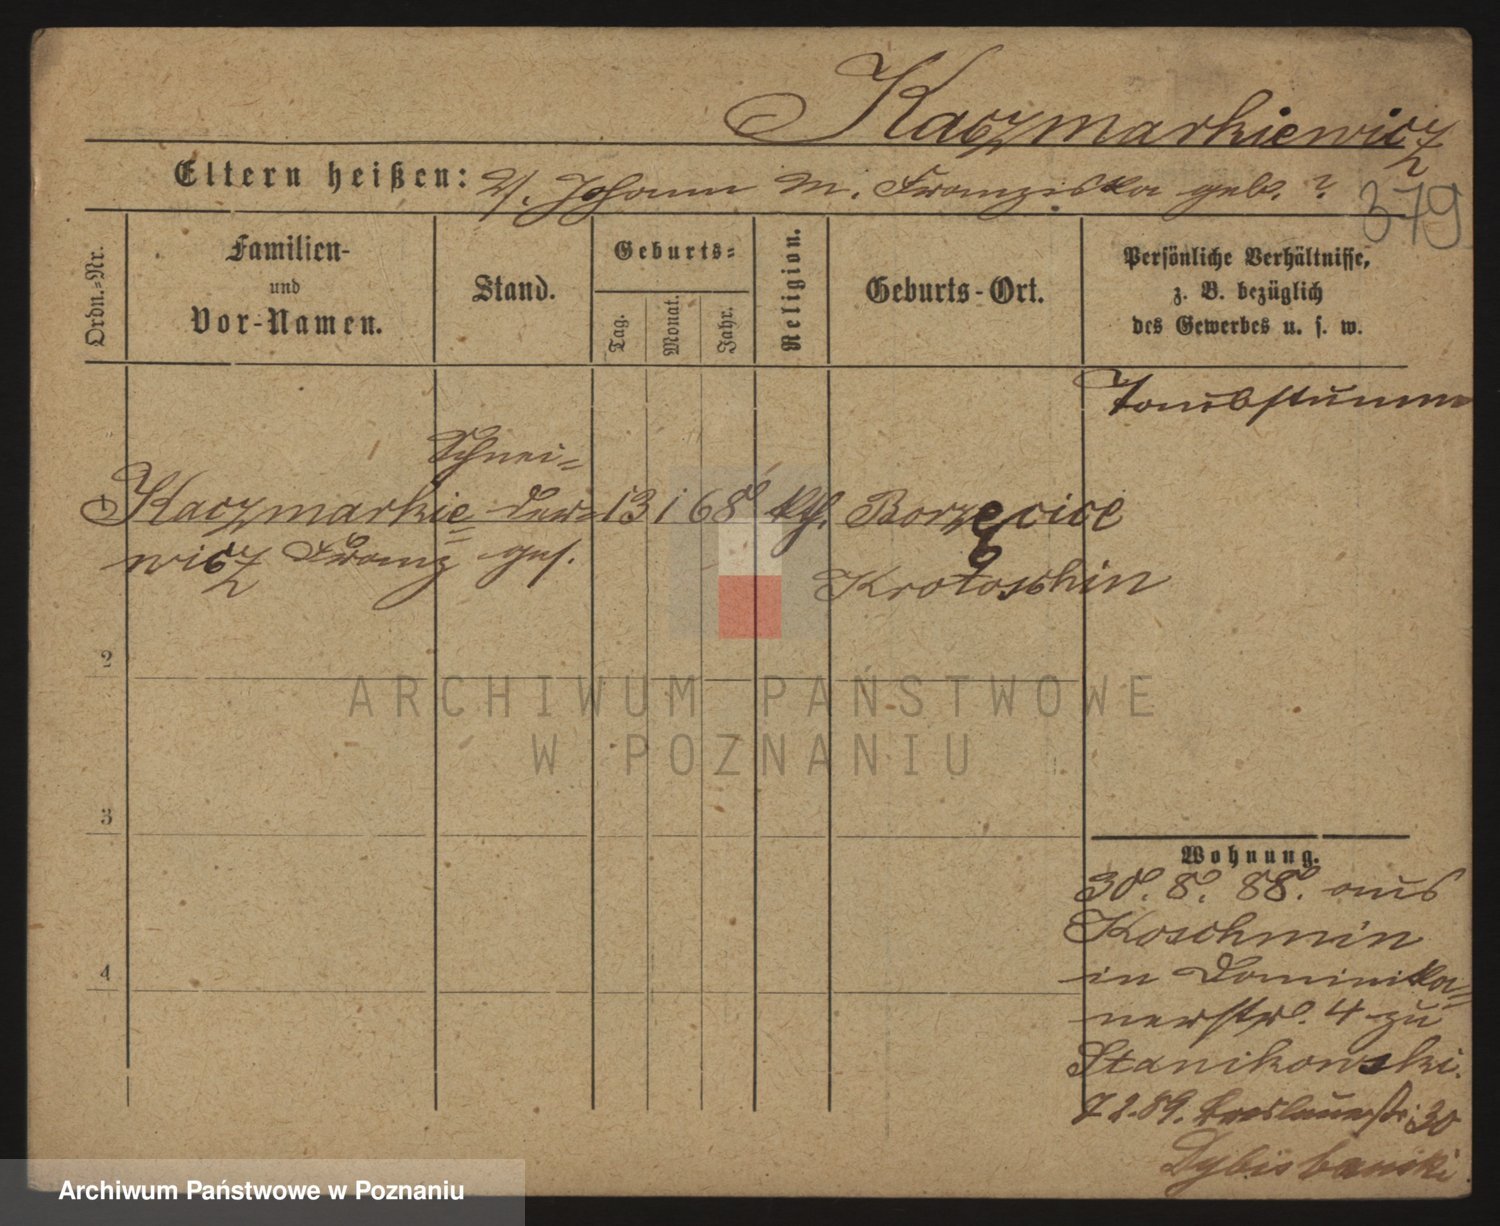 Kaczmarkiewicz
Eltern heißen: V. Johann M. Franziska geb. ?
379
Ordn.=Nr.
Familien-
und
Vor-Namen.
Stand.
Geburts=
Tag.
Monat.
Jahr.
Religion.
Geburts-Ort.
Persönliche Verhältnisse,
z. B. bezüglich
des Gewerbes u. s. w.
Taubstumm
Schnei=
1 Kaczmarkie= der= 13 1 68 kth. Borzęcice
wicz Franz ges. Krotoschin
2
3
4
Wohnung.
30. 8. 88. aus
Koschmin
in Dominika=
nerstr. 4 zu
Stanikowski.
7 2.89. Breslauerstr. 30
Dybisbanski
ARCHIWUM PAŃSTWOWE
W POZNANIU
Archiwum Państwowe w Poznaniu